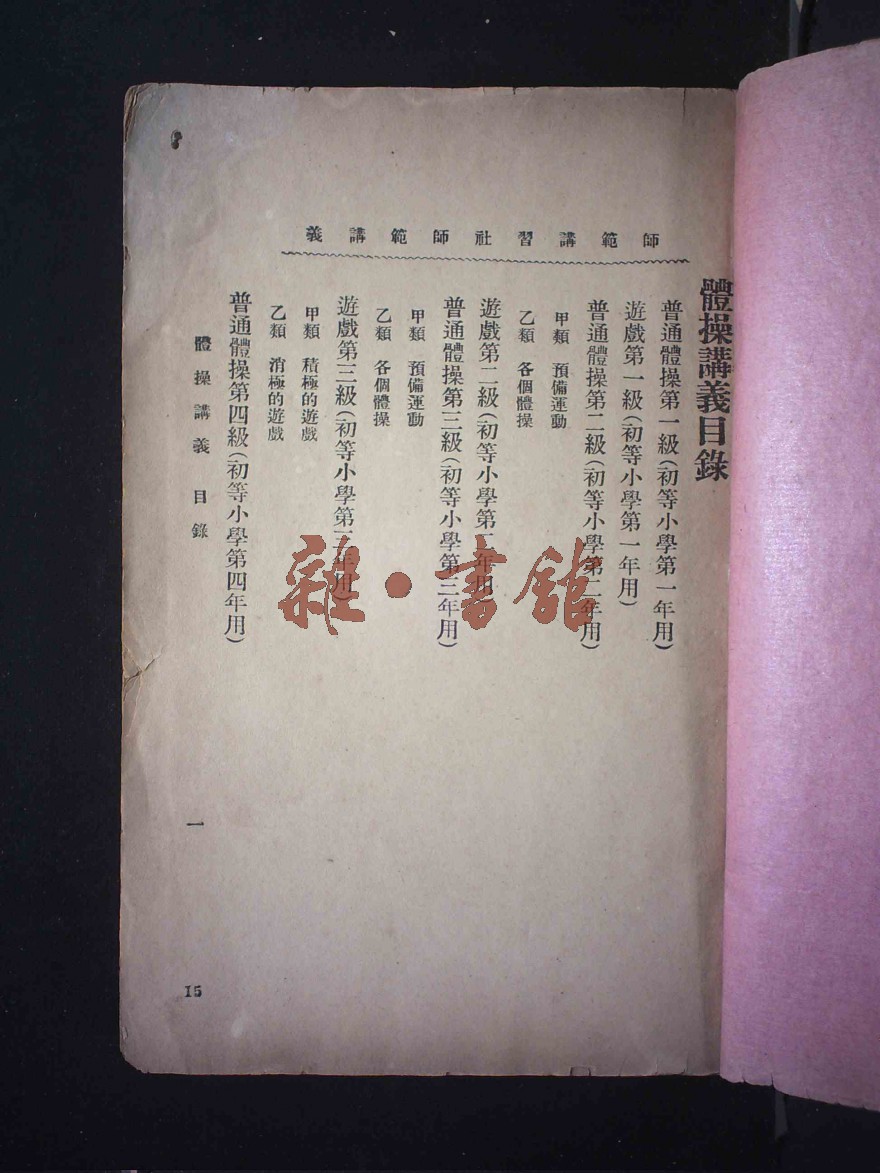 師範講習社師範講義
體操講義目錄
普通體操第一級(初等小學第一年用)
遊戲第一級(初等小學第一年用)
普通體操第二級(初等小學第二年用)
甲類 預備運動
乙類 各個體操
遊戲第二級(初等小學第二年用)
普通體操第三級(初等小學第三年用)
甲類 預備運動
乙類 各個體操
遊戲第三級(初等小學第三年用)
甲類 積極的遊戲
乙類 消極的遊戲
普通體操第四級(初等小學第四年用)
體操講義 目錄
一
15
雜·書館